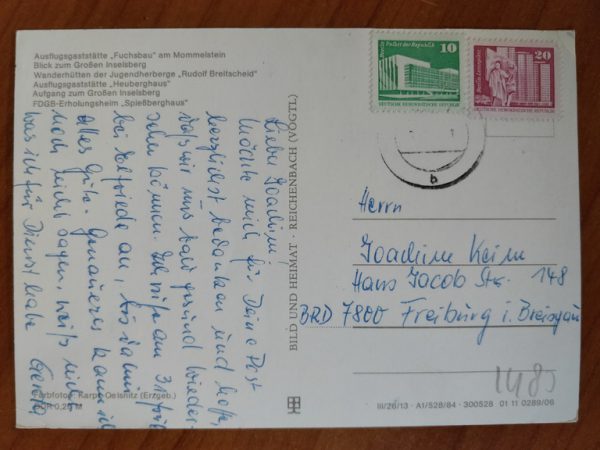 Ausflugsgaststätte „Fuchsbau" am Mommelstein
Blick zum Großen Inselsberg
Wanderhütten der Jugendherberge „Rudolf Breitscheid"
Ausflugsgaststätte „Heuberghaus"
Aufgang zum Großen Inselsberg
FDGB-Erholungsheim „Spießberghaus"
Lieber Joachim!
Möchte mich für Deine Post
herzlichst bedanken und hoffe,
daß wir uns bald gesund wieder-
sehen können. Ich rufe am 31.
bei Elfriede an, bis dahin
alles Gute. Genaueres kann ich
noch nicht sagen, weiß nicht
was ich für Dienst habe
Farbfotos: Karpf, Oelsnitz (Erzgeb.)
0,25 M
BILD UND HEIMAT · REICHENBACH (VOGTL)
Berlin Palast der Republik
10
DEUTSCHE DEMOKRATISCHE REPUBLIK
Berlin Leninplatz
20
DEUTSCHE DEMOKRATISCHE REPUBLIK
b
Herrn
Joachim Keim
Hans Jacob Str. 148
BRD 7800 Freiburg i. Breisgau
1485
III/26/13 · A1/528/84 · 300528 01 11 0289/06